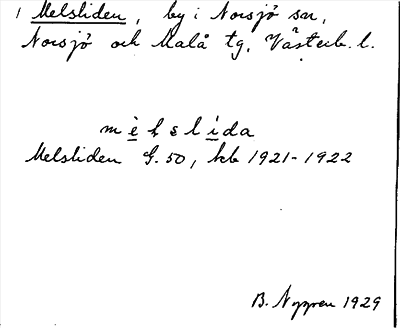 1 Melsliden, by i Norsjö sn,
Norsjö och Malå tg, Västerb. l.
mèlslìda
Melsliden G. 50, kb 1921-1922
B. Nygren 1929